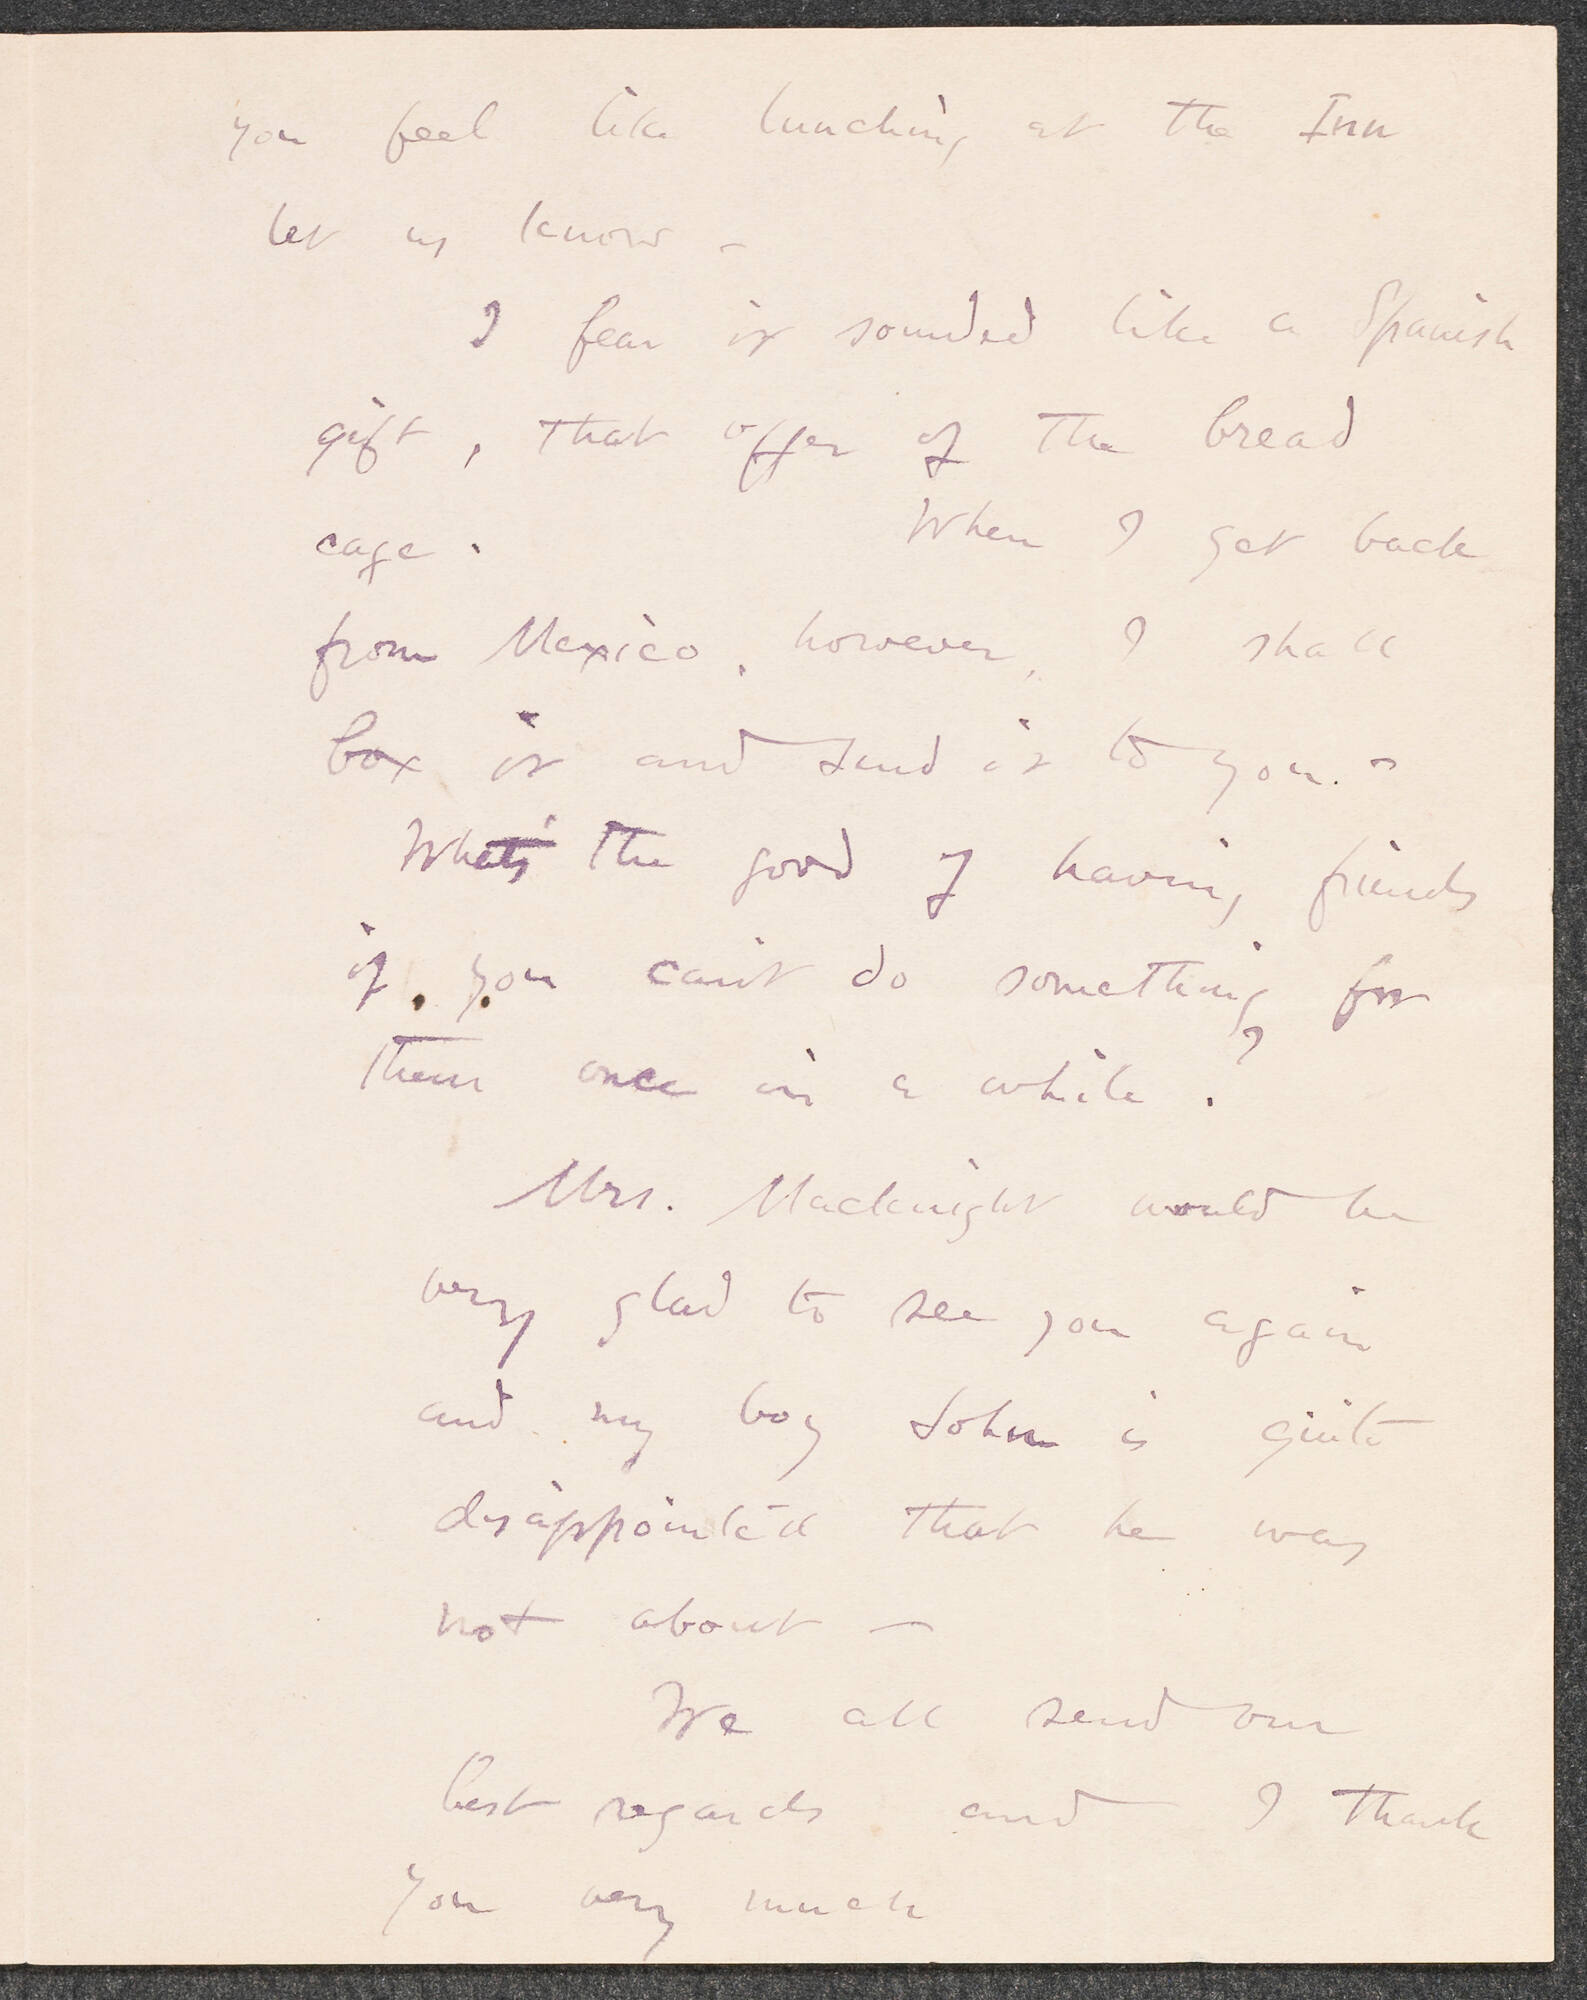 you feel like lunching at the Inn
let us know -
I fear it sounded like a Spanish
gift, that offer of the bread
cage. When I get back
from Mexico, however, I shall
box it and send it to you. -
What's the good of having friends
if you can't do something for
them once in a while?
Mrs. Macknight would be
very glad to see you again
and my boy John is quite
disappointed that he was
not about -
We all send our
best regards and I thank
you very much